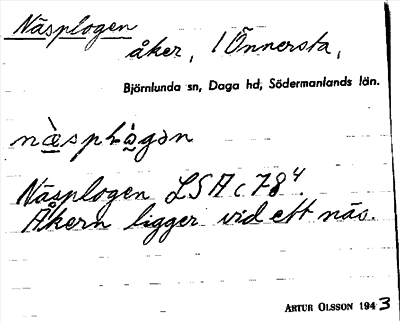 Näsplogen
åker, 1 Önnersta,
Björnlunda sn, Daga hd, Södermanlands län.
Näsplogen LSA c 78⁴.
Åkern ligger vid ett näs.
ARTUR OLSSON 1943